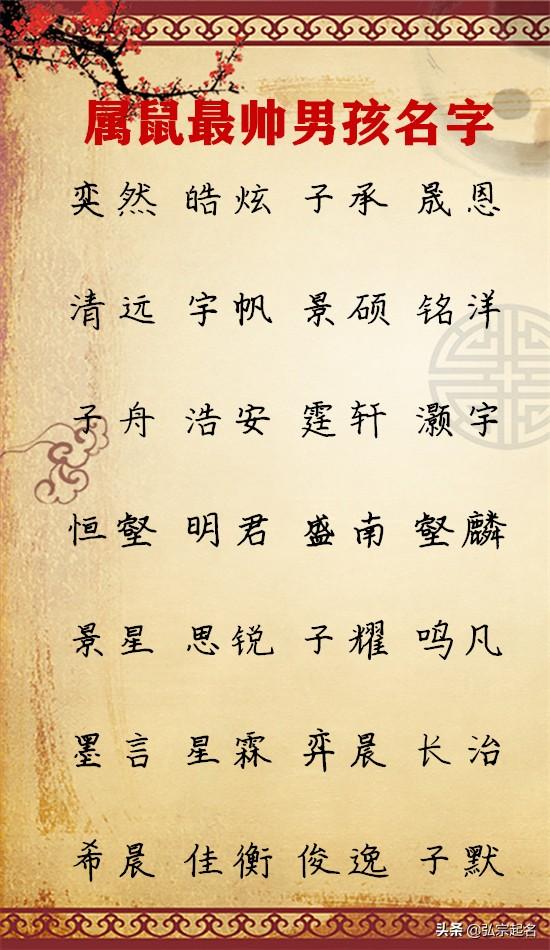 属鼠最帅男孩名字
奕然 皓炫 子承 晟恩
清远 宇帆 景硕 铭洋
子舟 浩安 霆轩 灏宇
恒壑 明君 盛南 壑麟
景星 思锐 子耀 鸣凡
墨言 星霖 弈晨 长治
希晨 佳衡 俊逸 子默
头条 @弘宗起名